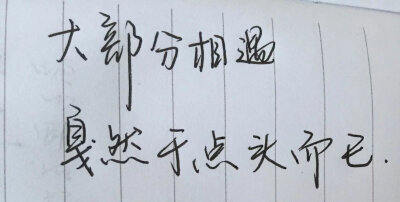 大部分相遇
戛然于点头而已.